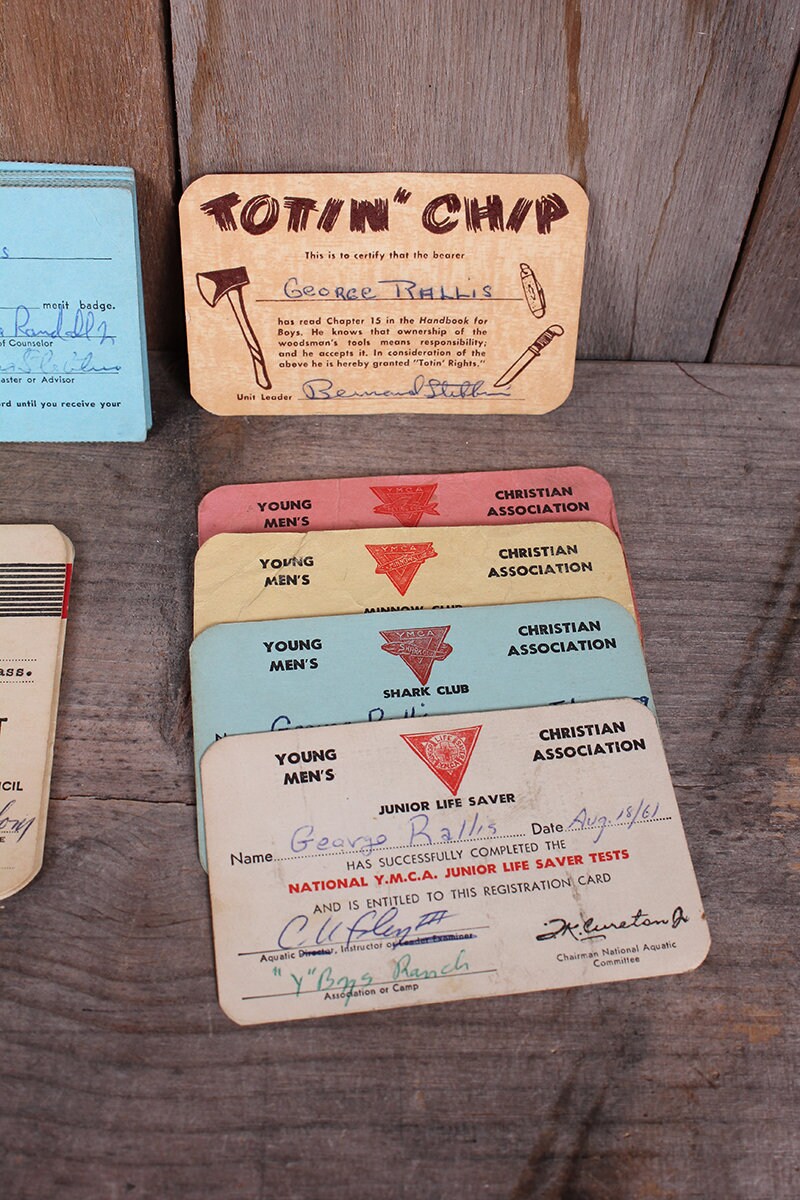 s
merit badge.
Randall Jr
of Counselor
aster or Advisor
rd until you receive your
TOTIN" CHIP
This is to certify that the bearer
GEORGE RALLIS
has read Chapter 15 in the Handbook for
Boys. He knows that ownership of the
woodsman's tools means responsibility;
and he accepts it. In consideration of the
above he is hereby granted "Totin' Rights."
Unit Leader Bernard
ass.
T
CIL
E
YOUNG MEN'S YMCA CHRISTIAN ASSOCIATION
YOUNG MEN'S YMCA MINNOW CHRISTIAN ASSOCIATION
MINNOW CLUB
YOUNG MEN'S YMCA SHARK CHRISTIAN ASSOCIATION
SHARK CLUB
George Rallis
YOUNG MEN'S CHRISTIAN ASSOCIATION
JUNIOR LIFE SAVER
Name George Rallis Date Aug. 18/61
HAS SUCCESSFULLY COMPLETED THE
NATIONAL Y.M.C.A. JUNIOR LIFE SAVER TESTS
AND IS ENTITLED TO THIS REGISTRATION CARD
Aquatic Director, Instructor or Leader Examiner
T.K. Cureton Jr
Chairman National Aquatic
Committee
"Y" Boys Ranch
Association or Camp